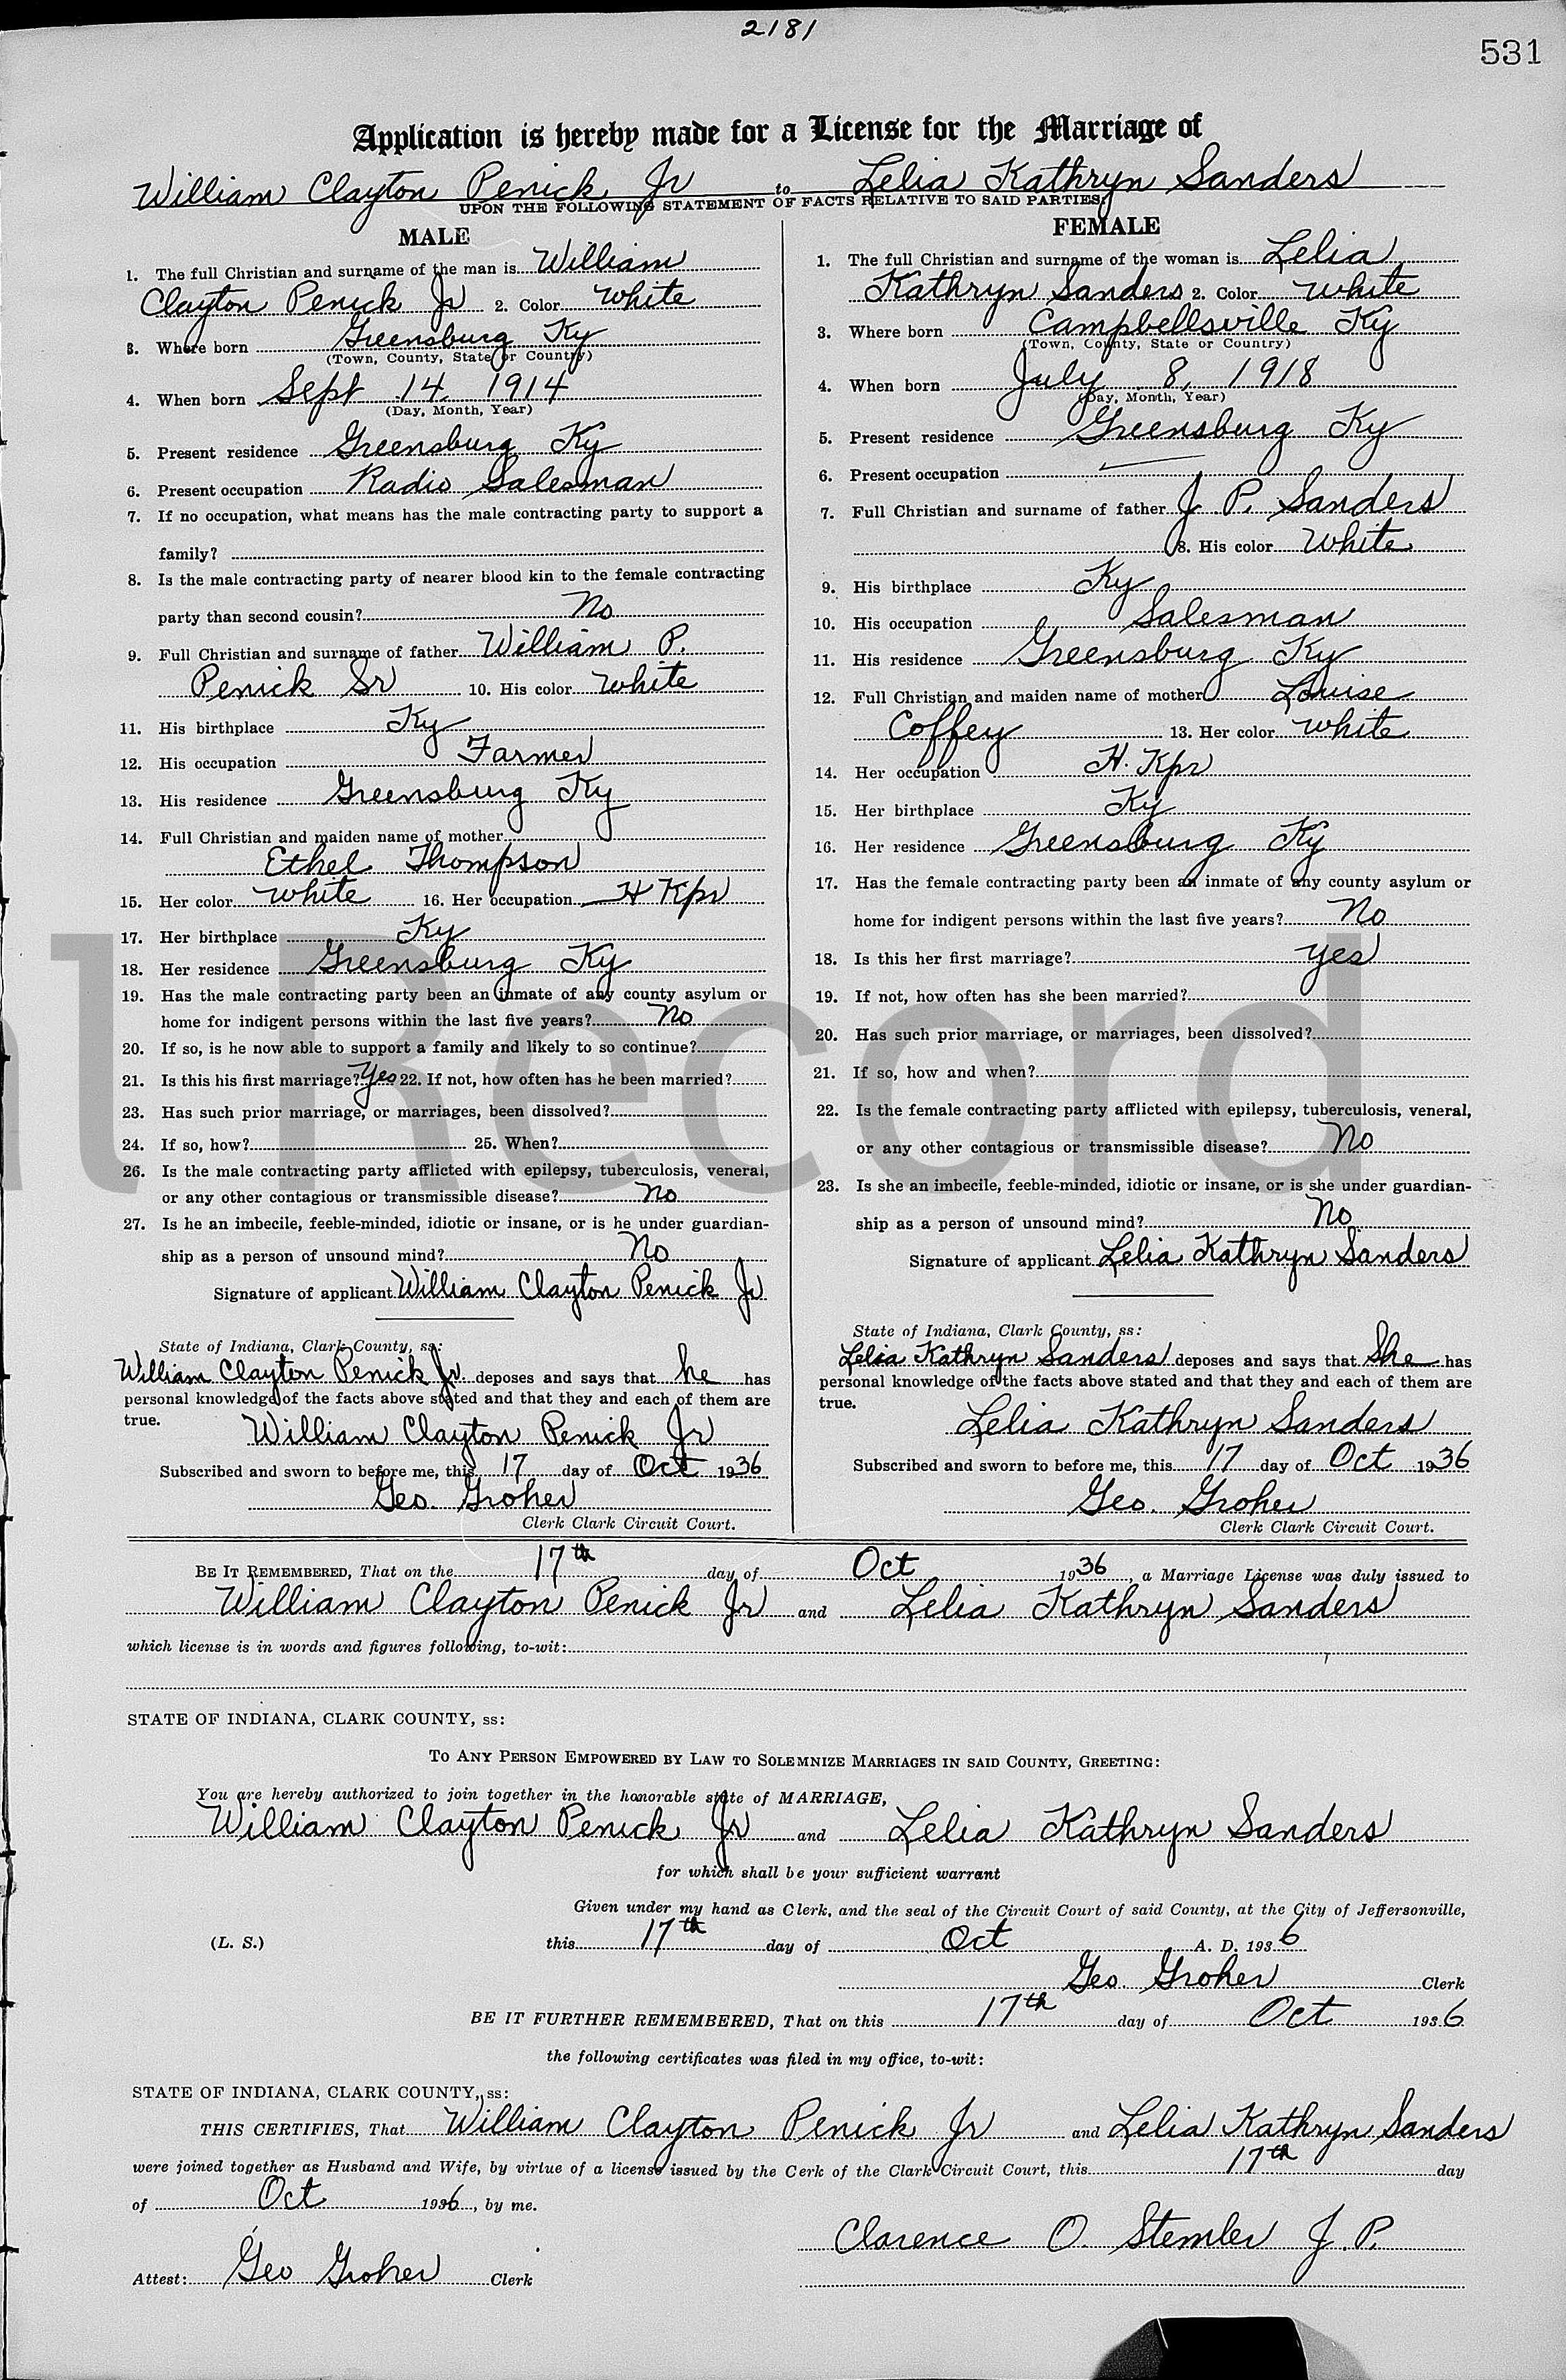 2181
531
Application is hereby made for a License for the Marriage of
William Clayton Penick Jr to Lelia Kathryn Sanders
UPON THE FOLLOWING STATEMENT OF FACTS RELATIVE TO SAID PARTIES:
MALE
1. The full Christian and surname of the man is William
Clayton Penick Jr 2. Color White
3. Where born Greensburg Ky
(Town, County, State or Country)
4. When born Sept 14, 1914
(Day, Month, Year)
5. Present residence Greensburg Ky
6. Present occupation Radio Salesman
7. If no occupation, what means has the male contracting party to support a
family?
8. Is the male contracting party of nearer blood kin to the female contracting
party than second cousin? No
9. Full Christian and surname of father William P.
Penick Sr 10. His color White
11. His birthplace Ky
12. His occupation Farmer
13. His residence Greensburg Ky
14. Full Christian and maiden name of mother
Ethel Thompson
15. Her color White 16. Her occupation H Kpr
17. Her birthplace Ky
18. Her residence Greensburg Ky
19. Has the male contracting party been an inmate of any county asylum or
home for indigent persons within the last five years? No
20. If so, is he now able to support a family and likely to so continue?
21. Is this his first marriage? Yes 22. If not, how often has he been married?
23. Has such prior marriage, or marriages, been dissolved?
24. If so, how? 25. When?
26. Is the male contracting party afflicted with epilepsy, tuberculosis, veneral,
or any other contagious or transmissible disease? No
27. Is he an imbecile, feeble-minded, idiotic or insane, or is he under guardian-
ship as a person of unsound mind? No
Signature of applicant William Clayton Penick Jr
State of Indiana, Clark County, ss:
William Clayton Penick Jr. deposes and says that he has
personal knowledge of the facts above stated and that they and each of them are
true.
William Clayton Penick Jr
Subscribed and sworn to before me, this 17 day of Oct 1936
Geo. Groher
Clerk Clark Circuit Court.
FEMALE
1. The full Christian and surname of the woman is Lelia
Kathryn Sanders 2. Color White
3. Where born Campbellsville Ky
(Town, County, State or Country)
4. When born July 8, 1918
(Day, Month, Year)
5. Present residence Greensburg Ky
6. Present occupation
7. Full Christian and surname of father J. P. Sanders
8. His color White
9. His birthplace Ky
10. His occupation Salesman
11. His residence Greensburg Ky
12. Full Christian and maiden name of mother Louise
Coffey 13. Her color White
14. Her occupation H. Kpr
15. Her birthplace Ky
16. Her residence Greensburg Ky
17. Has the female contracting party been an inmate of any county asylum or
home for indigent persons within the last five years? No
18. Is this her first marriage? Yes
19. If not, how often has she been married?
20. Has such prior marriage, or marriages, been dissolved?
21. If so, how and when?
22. Is the female contracting party afflicted with epilepsy, tuberculosis, veneral,
or any other contagious or transmissible disease? No
23. Is she an imbecile, feeble-minded, idiotic or insane, or is she under guardian-
ship as a person of unsound mind? No
Signature of applicant Lelia Kathryn Sanders
State of Indiana, Clark County, ss:
Lelia Kathryn Sanders deposes and says that She has
personal knowledge of the facts above stated and that they and each of them are
true.
Lelia Kathryn Sanders
Subscribed and sworn to before me, this 17 day of Oct 1936
Geo. Groher
Clerk Clark Circuit Court.
BE IT REMEMBERED, That on the 17th day of Oct 1936, a Marriage License was duly issued to
William Clayton Penick Jr and Lelia Kathryn Sanders
which license is in words and figures following, to-wit:
STATE OF INDIANA, CLARK COUNTY, ss:
TO ANY PERSON EMPOWERED BY LAW TO SOLEMNIZE MARRIAGES IN SAID COUNTY, GREETING:
You are hereby authorized to join together in the honorable state of MARRIAGE,
William Clayton Penick Jr and Lelia Kathryn Sanders
for which shall be your sufficient warrant
Given under my hand as Clerk, and the seal of the Circuit Court of said County, at the City of Jeffersonville,
(L. S.) this 17th day of Oct A. D. 1936
Geo. Groher Clerk
BE IT FURTHER REMEMBERED, That on this 17th day of Oct 1936
the following certificates was filed in my office, to-wit:
STATE OF INDIANA, CLARK COUNTY, ss:
THIS CERTIFIES, That William Clayton Penick Jr and Lelia Kathryn Sanders
were joined together as Husband and Wife, by virtue of a license issued by the Cerk of the Clark Circuit Court, this 17th day
of Oct 1936, by me.
Clarence O. Stemler J. P.
Attest: Geo Groher Clerk
l Record